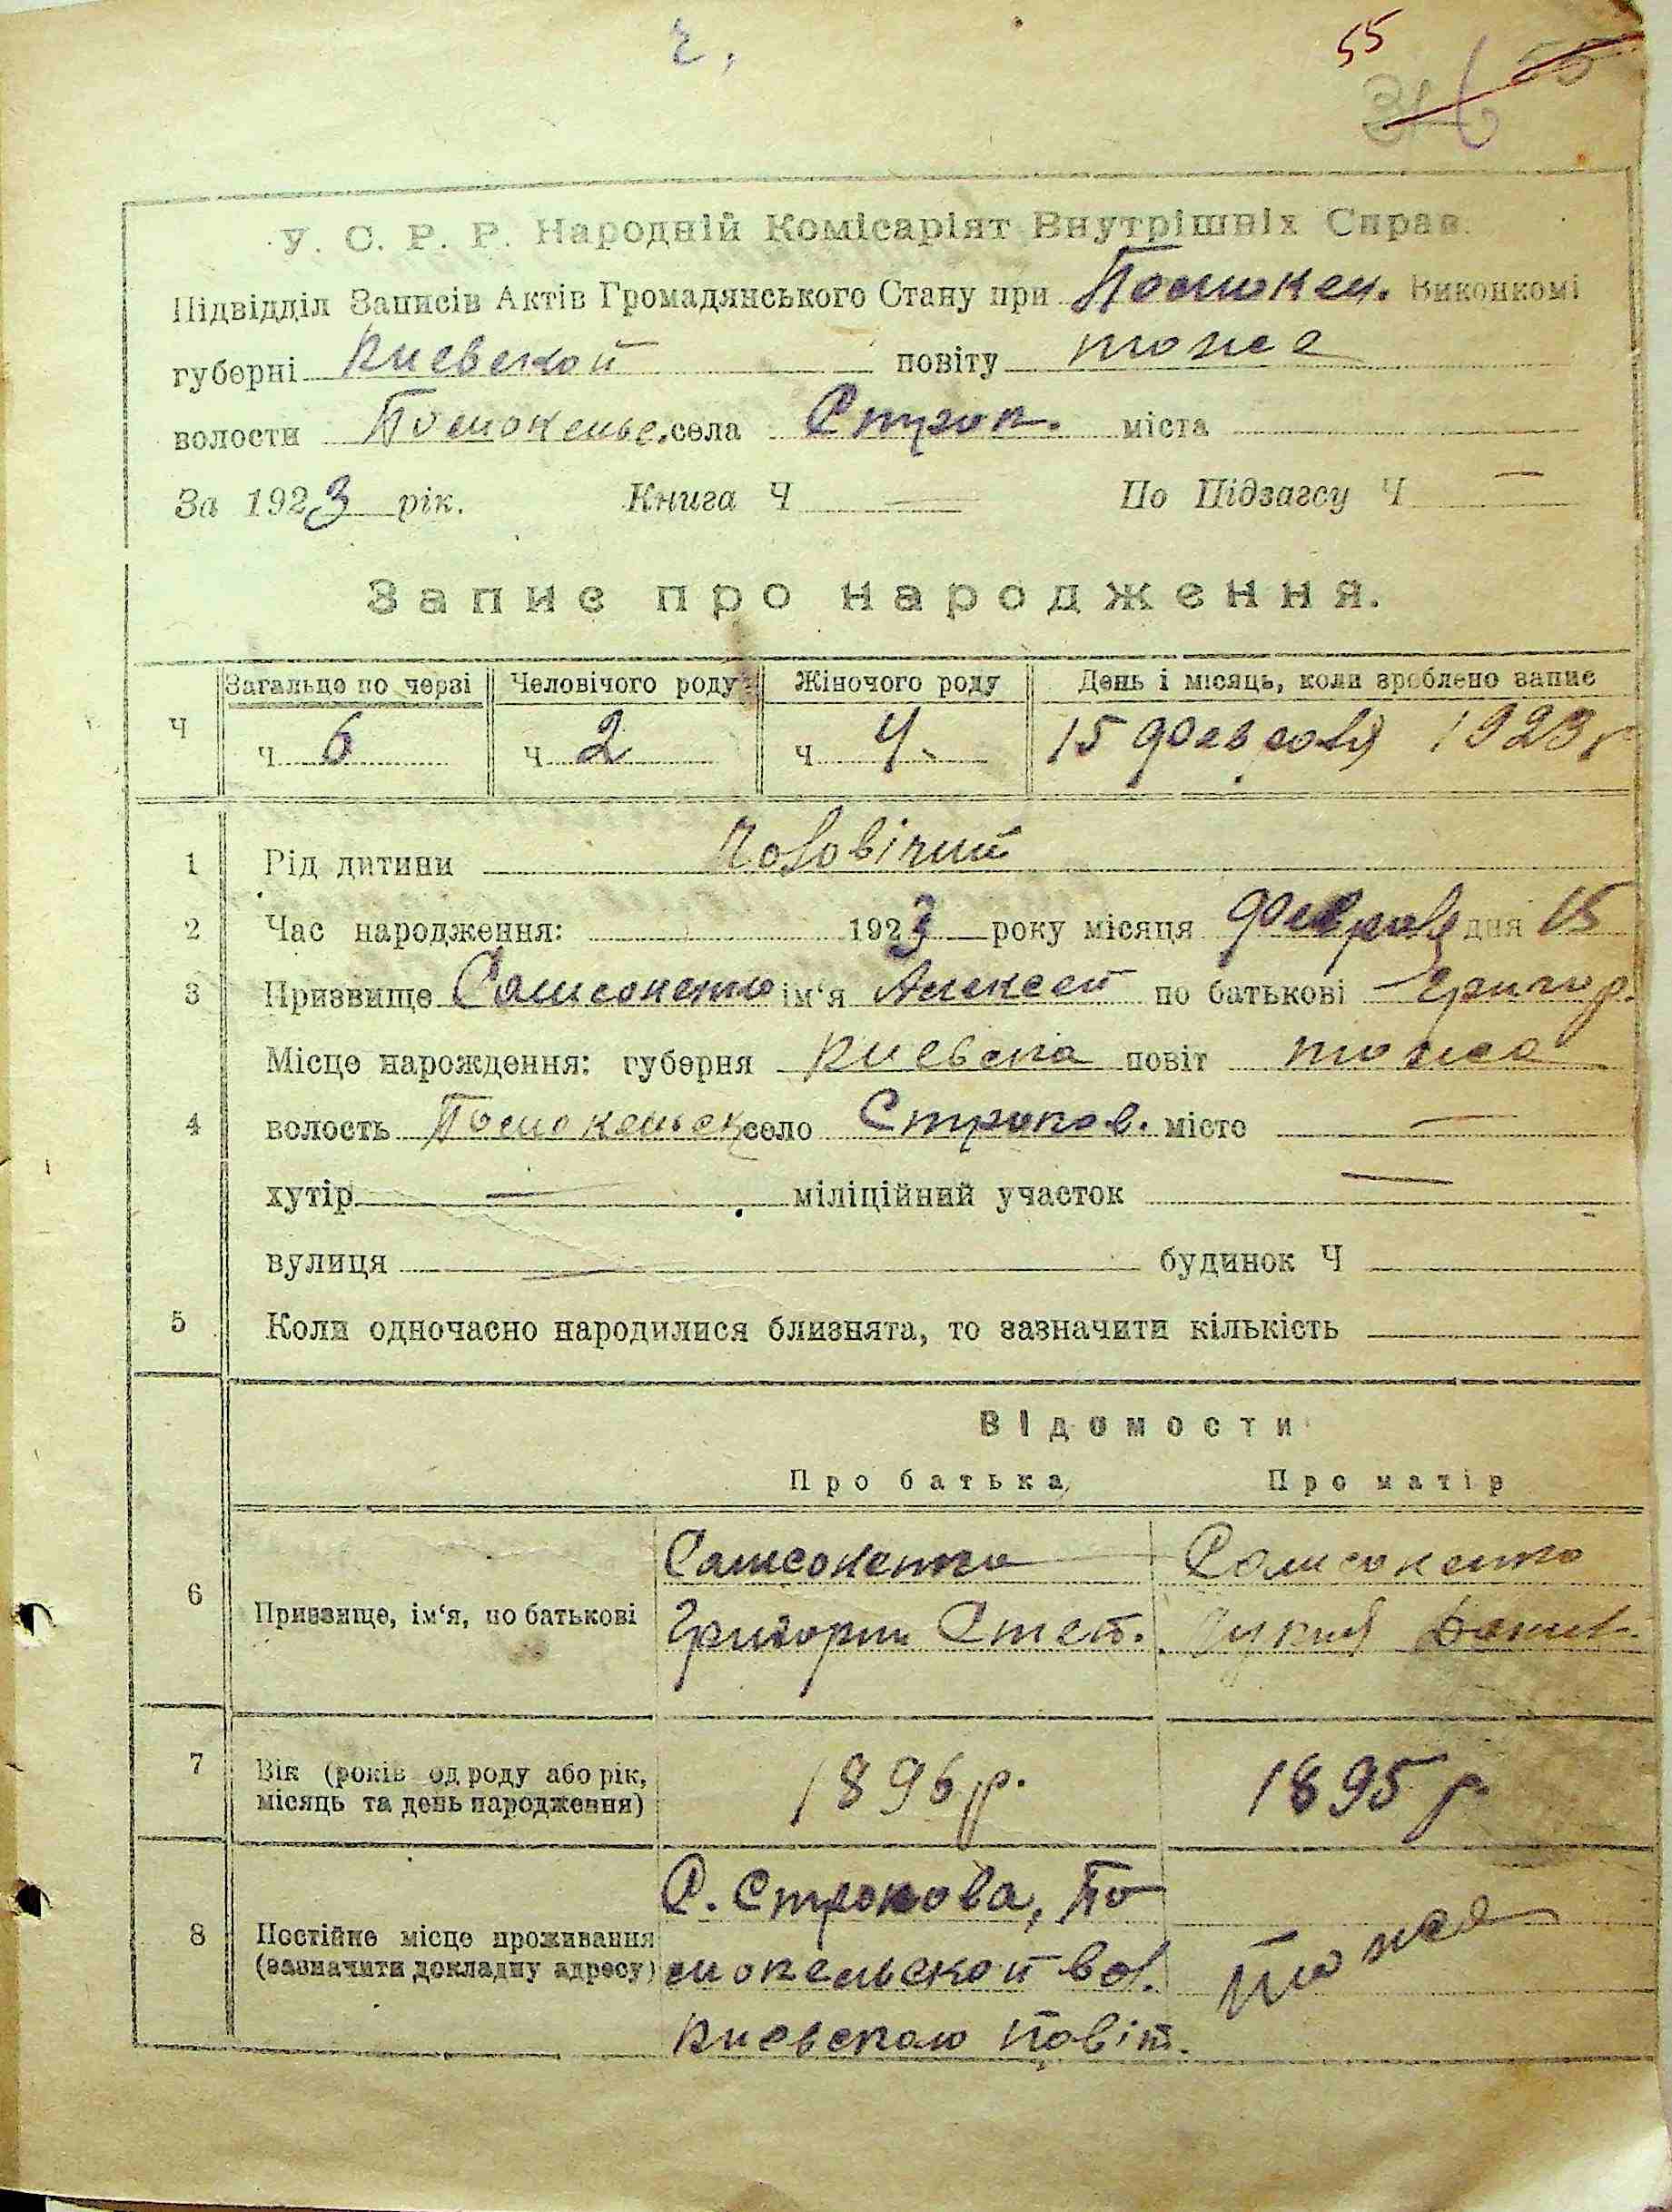 55
У. С. Р. Р. Народній Комісаріят Внутрішніх Справ.
Підвідділ Записів Актів Громадянського Стану при Виконкомі
губерні Киевской повіту тоже
волости села Строк. міста
За 1923 рік. Книга Ч По Підзагсу Ч
Запис про народження.
Загальне по черзі Человічого роду Жіночого роду День і місяць, коли зроблено запис
Ч Ч 6 Ч 2 Ч 4 15 февраля 1923 г
1 Рід дитини Чоловічий
2 Час народження: 1923 року місяця февраля дня 15
3 Призвище Самсоненко ім'я Алексей по батькові Григор.
Місце нарождення: губерня Киевска повіт тоже
4 волость село Строков. місто
хутір міліційний участок
вулиця будинок Ч
5 Коли одночасно народилися близнята, то зазначити кількість
Відомости
Про батька Про матір
6 Призвище, ім'я, по батькові Самсоненко Самсоненко
Григорий Степ.
7 Вік (років од роду або рік, місяць та день народження) 1896 р. 1895 р.
8 Постійне місце проживання (зазначити докладну адресу) С. Строкова, тоже
вол.
Киевскаю повіт.